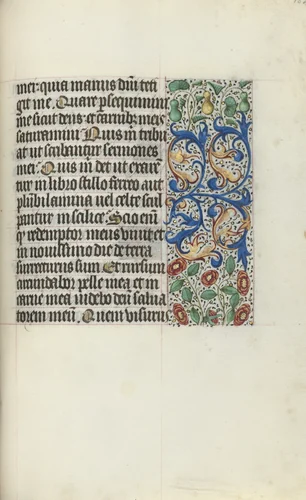 mei: quia manus dñi teti
git me. Quare persequimini
me sicut deus: et carnibz meis
saturamini Quis mi tribu
at ut scribantur sermones
mei: Quis mi det ut exaren
tur in libro stillo ferreo aut
plūbi lamina vel celte scul
pantur in silice: Scio eni
q redemptor meus vivit et
in novissimo die de terra
surrecturus sum Et rursum
circundabor pelle mea et in
carne mea videbo deū salva
torem meū. Quem visurus